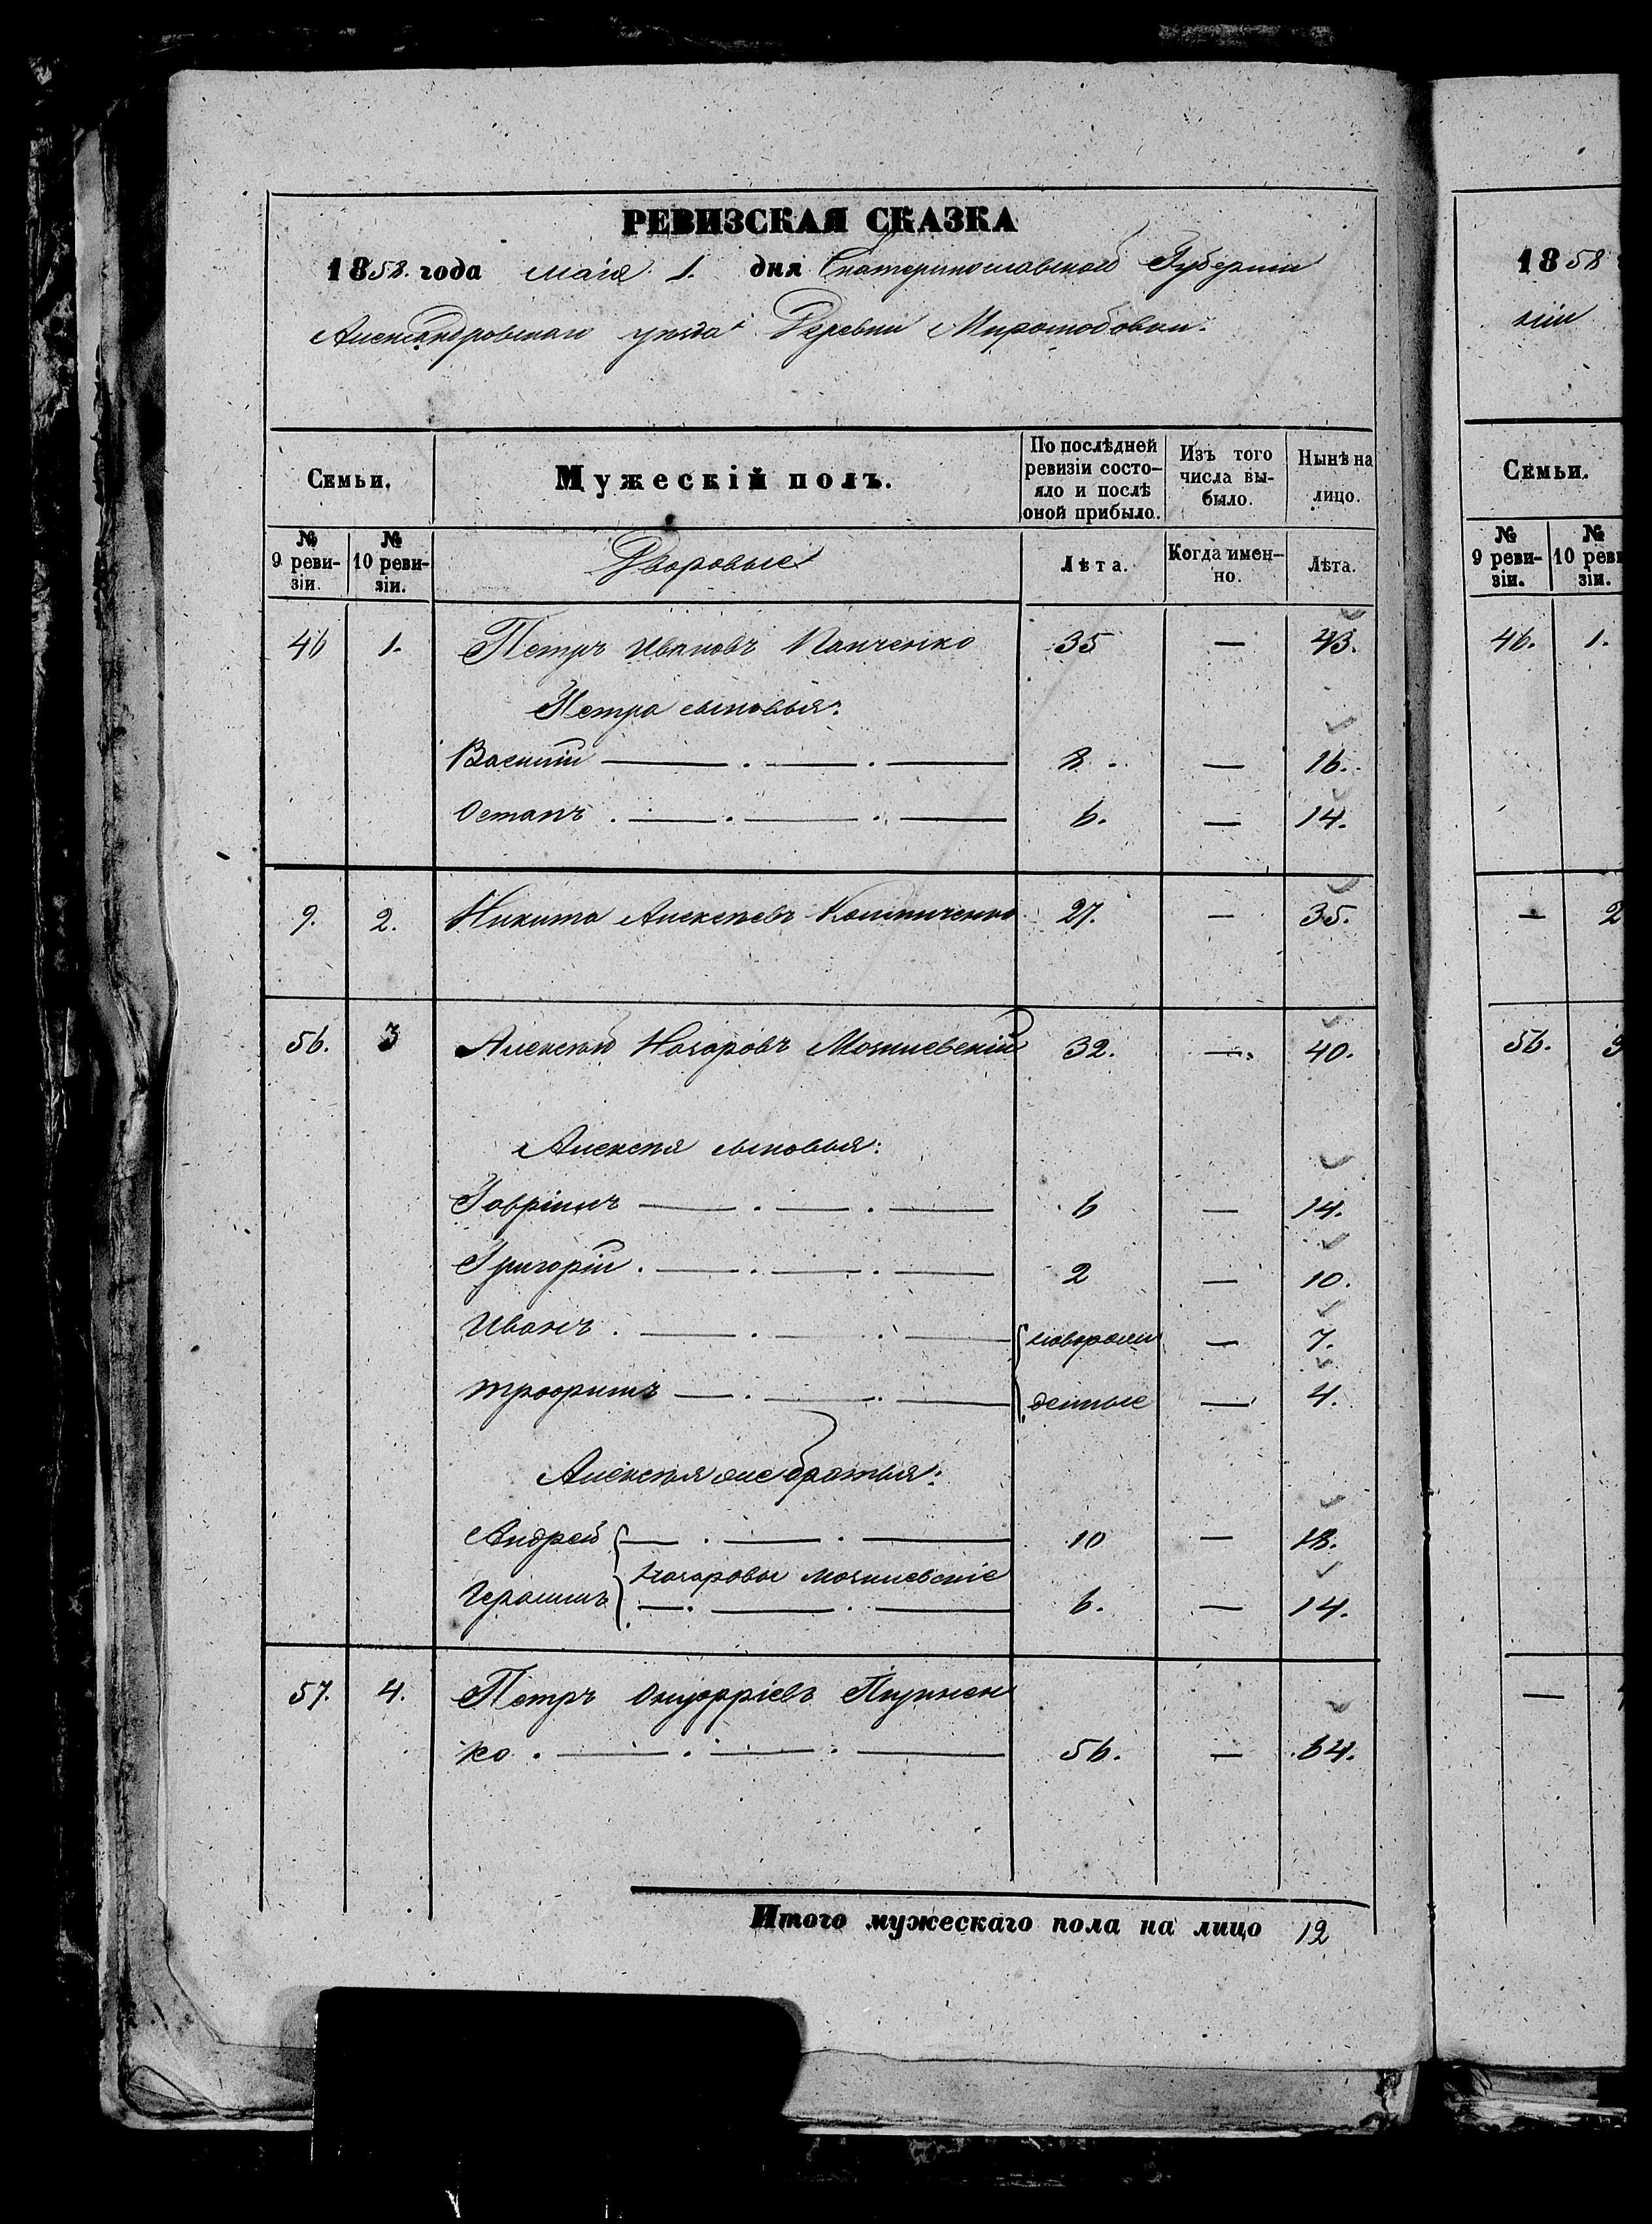 РЕВИЗСКАЯ СКАЗКА
1858. года маія 1. дня Екатеринославской Губерніи
Александровскаго уѣзда Деревни Миролюбовки.
Семьи.
Мужескій полъ.
По послѣдней ревизіи состояло и послѣ оной прибыло.
Изъ того числа выбыло.
Нынѣ на лицо.
№ 9 ревизіи.
№ 10 ревизіи.
Дворовые
Лѣта.
Когда именно.
Лѣта.
46 1. Петръ Ивановъ Панченко 35 — 43.
Петра сыновья:
Василій — . — . — 8. — 16.
Остапъ . — . — . — 6. — 14.
9. 2. Никита Алексѣевъ 27. — 35.
56. 3 Алексѣй Назаровъ 32. — 40.
Алексѣя сыновья:
Гавріилъ — . — . — 6 — 14.
Григорій . — . — . — 2 — 10.
Иванъ . — . — . — новорож — 7.
Трофимъ — . — . — денные — 4.
Алексѣя же братья:
Андрей — . — . — 10 — 18.
Назаровы
Герасимъ — . — . — 6. — 14.
57. 4. Петръ Онуфріевъ
ко . — . — . — 56. — 64.
Итого мужескаго пола на лицо 12
1858
ніи
Семьи.
№ 9 ревизіи.
№ 10 реви зіи.
46. 1.
— 2
56. 3
—